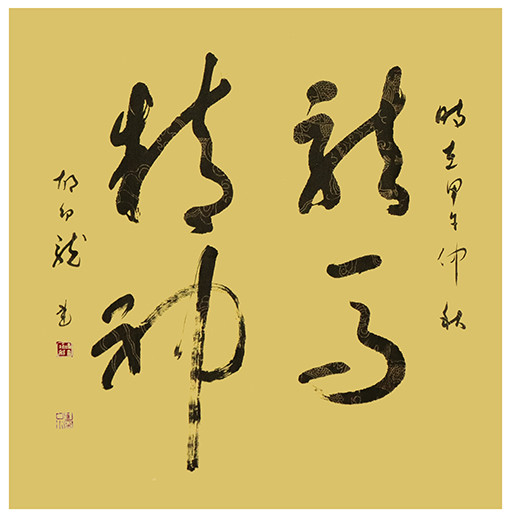 時在甲午仲秋
龍馬
精神
龍 書